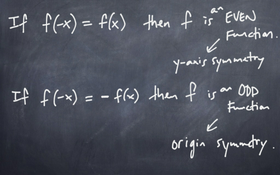 If f(-x) = f(x) then f is an EVEN
Function.
y-axis symmetry
If f(-x) = - f(x) then f is an ODD
Function
origin symmetry.